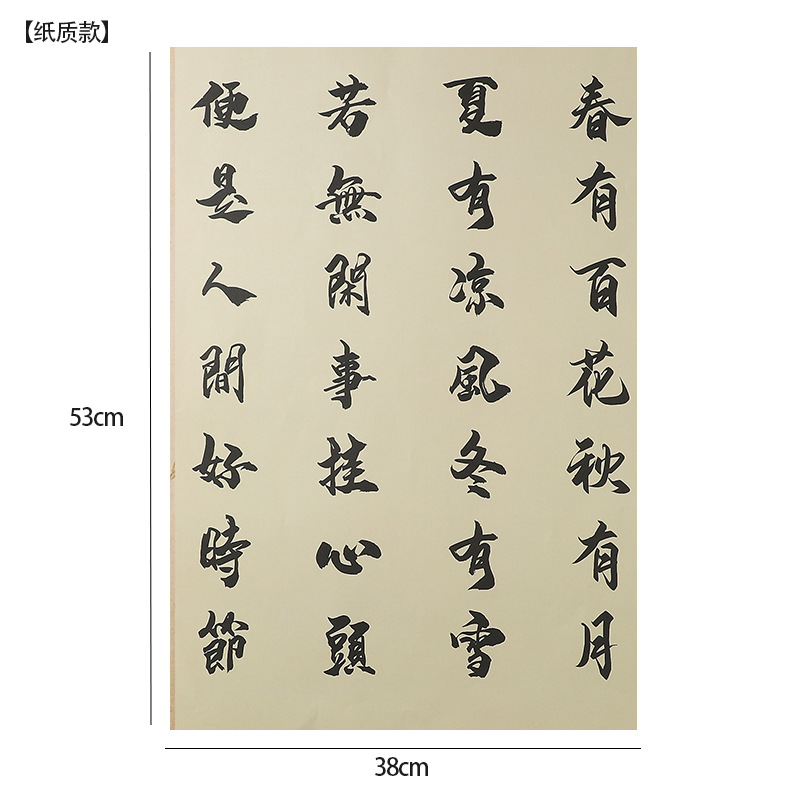 【纸质款】
春有百花秋有月
夏有凉風冬有雪
若無閑事挂心頭
便是人間好時節
53cm
38cm